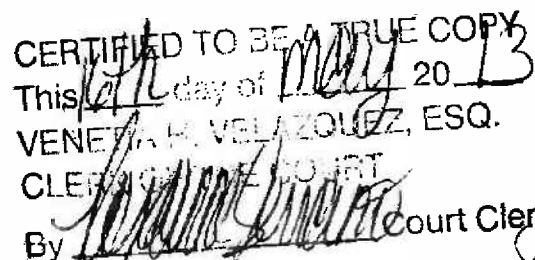 CERTIFIED TO BE A TRUE COPY
This 16th day of May 20 13
VENETIA H. VELAZQUEZ, ESQ.
CLERK OF THE COURT
By Court Cler